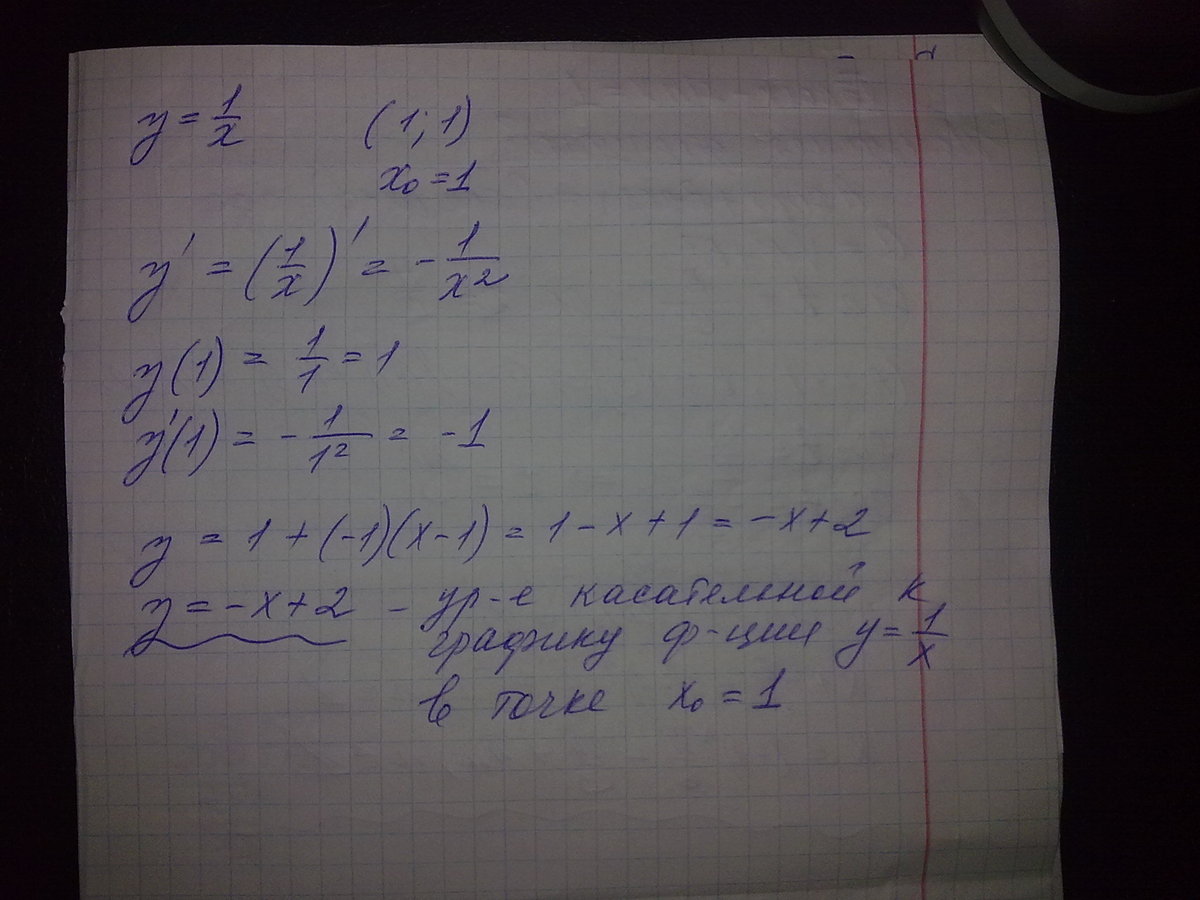 y = 1/x (1; 1)
x₀ = 1
y' = (1/x)' = - 1/x²
y(1) = 1/1 = 1
y'(1) = - 1/1² = -1
y = 1 + (-1)(x-1) = 1 - x + 1 = -x + 2
y = -x + 2 - ур-е касательной к
графику ф-ции y = 1/x
в точке x₀ = 1